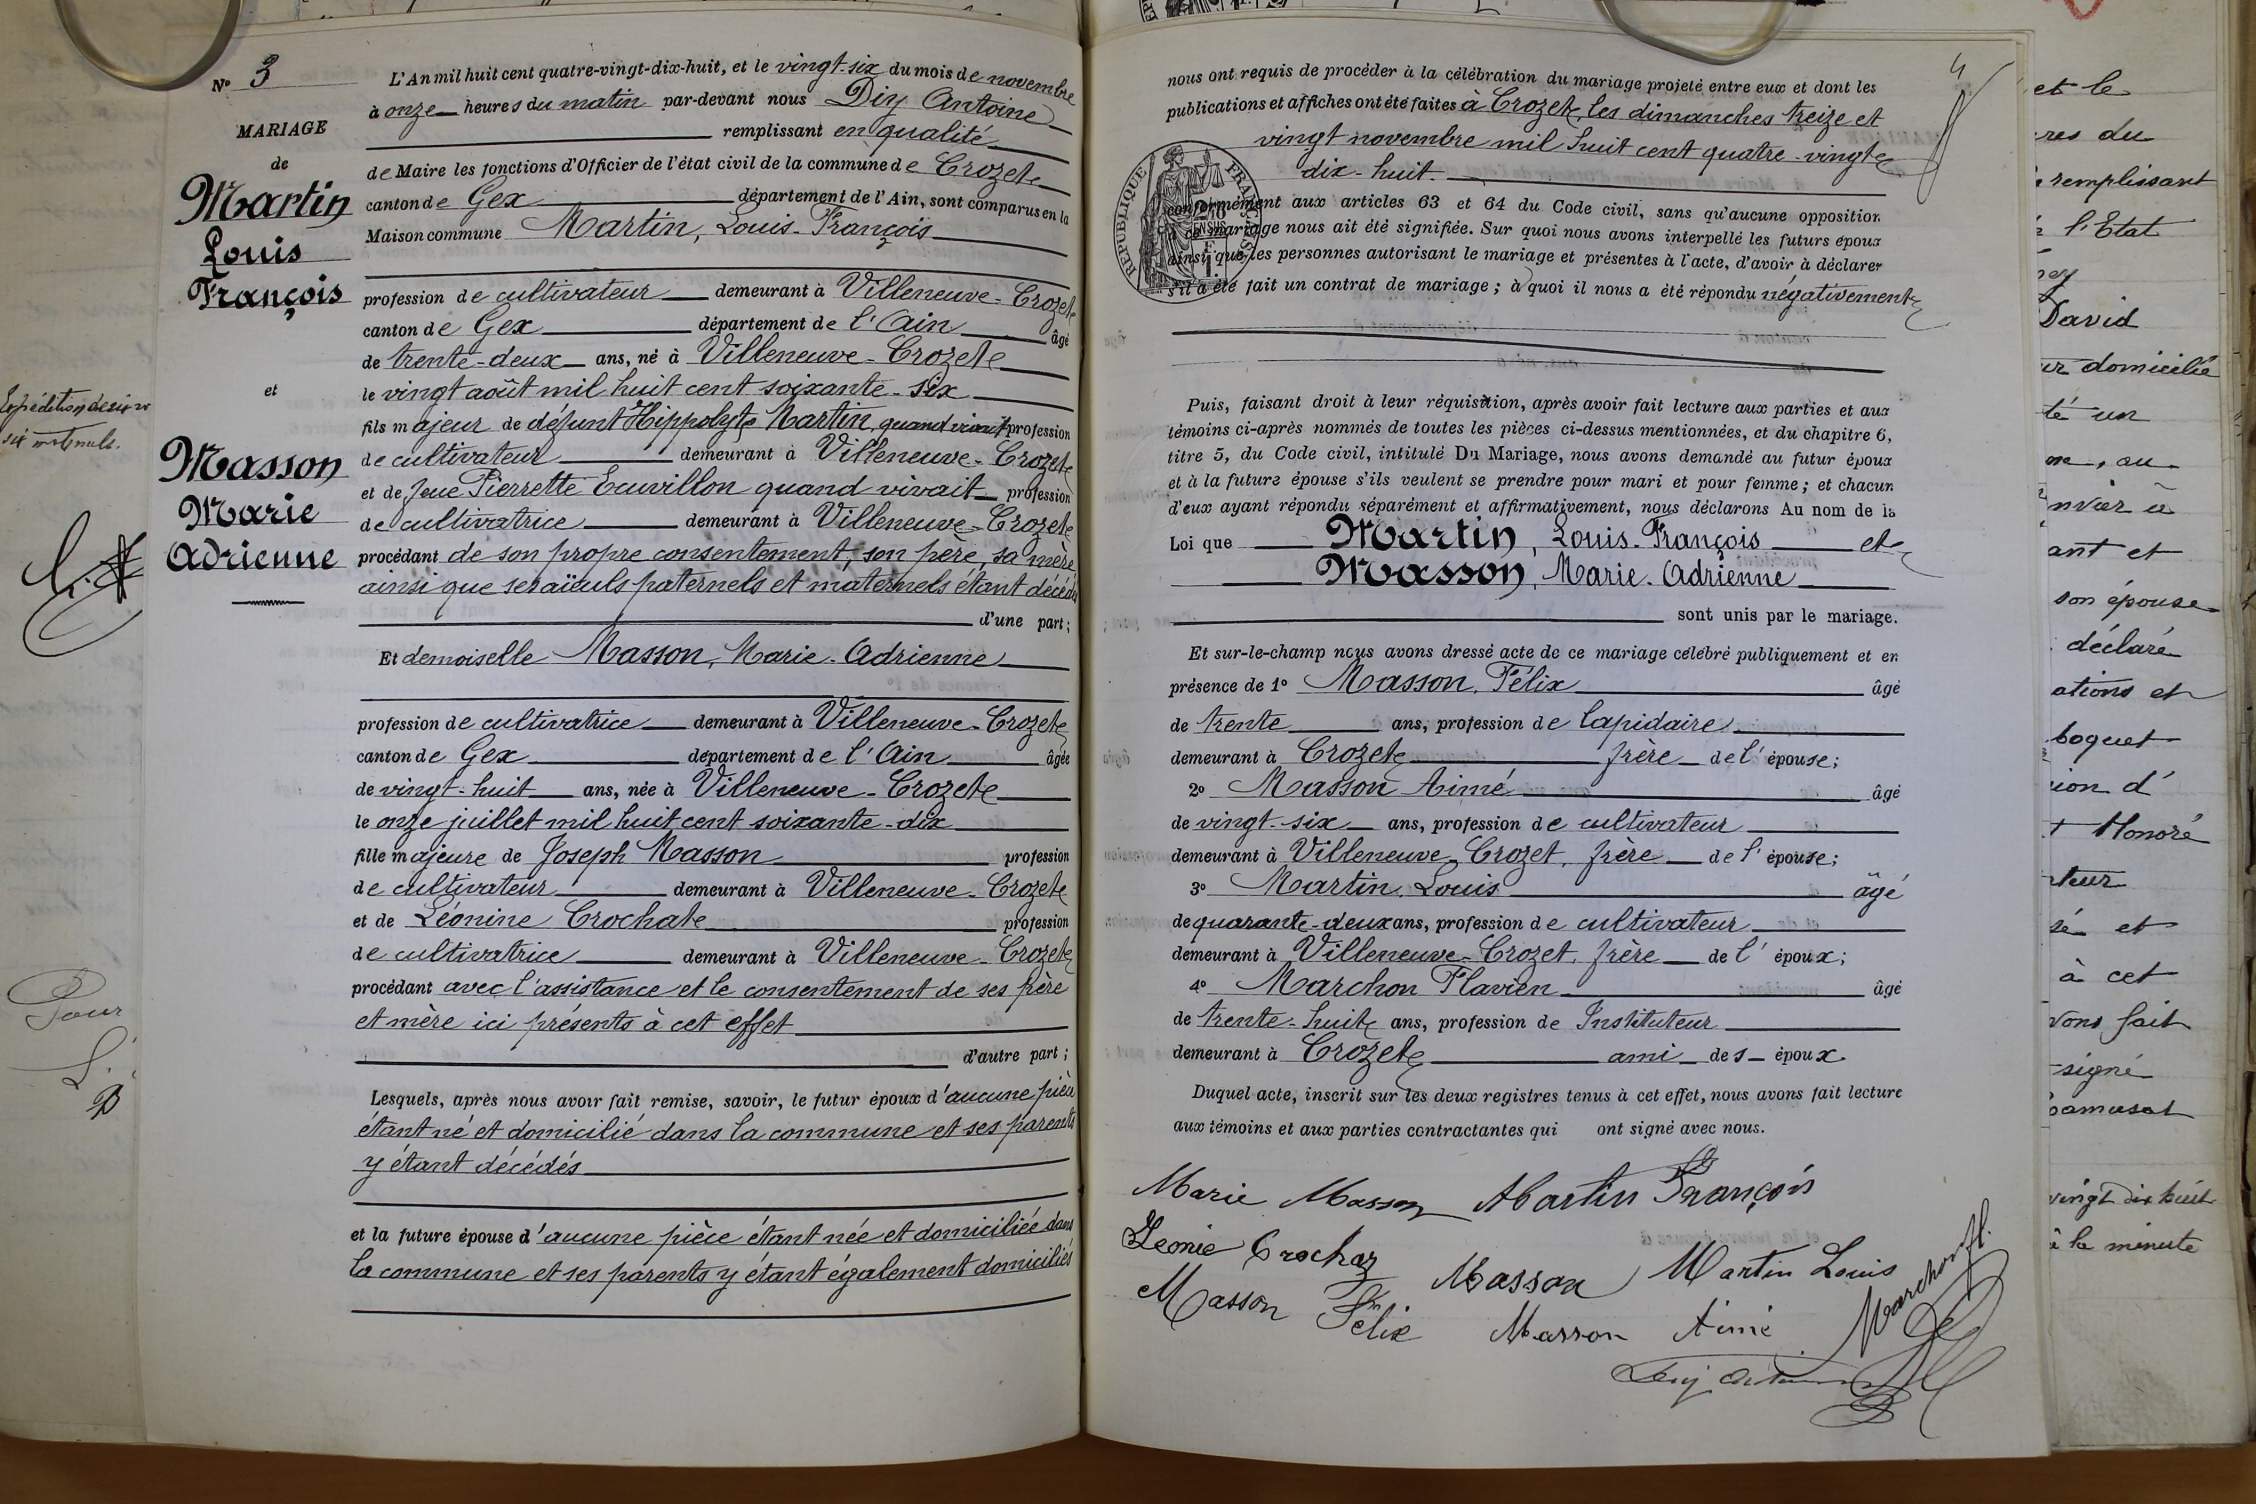 No 3
MARIAGE
de
Martin
Louis
François
et
Masson
Marie
Adrienne
L'An mil huit cent quatre-vingt-dix-huit, et le vingt-six du mois de novembre
à onze heures du matin par-devant nous Diy Antoine
remplissant en qualité
de Maire les fonctions d'Officier de l'état civil de la commune de Crozet
canton de Gex département de l'Ain, sont comparus en la
Maison commune Martin, Louis-François
profession de cultivateur demeurant à Villeneuve-Crozet
canton de Gex département de l'Ain âgé
de trente-deux ans, né à Villeneuve-Crozet
le vingt août mil huit cent soixante-six
fils majeur de défunt Hippolyte Martin, quand vivait profession
de cultivateur demeurant à Villeneuve-Crozet
et de feue Pierrette Ecuvillon quand vivait profession
de cultivatrice demeurant à Villeneuve-Crozet
procédant de son propre consentement, son père, sa mère
ainsi que ses aïeuls paternels et maternels étant décédés
d'une part;
Et demoiselle Masson, Marie-Adrienne
profession de cultivatrice demeurant à Villeneuve-Crozet
canton de Gex département de l'Ain âgée
de vingt-huit ans, née à Villeneuve-Crozet
le onze juillet mil huit cent soixante-dix
fille majeure de Joseph Masson profession
de cultivateur demeurant à Villeneuve-Crozet
et de Léonine Crochat profession
de cultivatrice demeurant à Villeneuve-Crozet
procédant avec l'assistance et le consentement de ses père
et mère ici présents à cet effet
d'autre part;
Lesquels, après nous avoir fait remise, savoir, le futur époux d'aucune pièce
étant né et domicilié dans la commune et ses parents
y étant décédés
et la future épouse d'aucune pièce étant née et domiciliée dans
la commune et ses parents y étant également domiciliés
Pour
4
nous ont requis de procéder à la célébration du mariage projeté entre eux et dont les
publications et affiches ont été faites à Crozet, les dimanches treize et
vingt novembre mil huit cent quatre-vingt
dix-huit.
RÉPUBLIQUE FRANÇAISE
conformément aux articles 63 et 64 du Code civil, sans qu'aucune opposition
à ce mariage nous ait été signifiée. Sur quoi nous avons interpellé les futurs époux
ainsi que les personnes autorisant le mariage et présentes à l'acte, d'avoir à déclarer
s'il a été fait un contrat de mariage; à quoi il nous a été répondu négativement
Puis, faisant droit à leur réquisition, après avoir fait lecture aux parties et aux
témoins ci-après nommés de toutes les pièces ci-dessus mentionnées, et du chapitre 6,
titre 5, du Code civil, intitulé Du Mariage, nous avons demandé au futur époux
et à la future épouse s'ils veulent se prendre pour mari et pour femme; et chacun
d'eux ayant répondu séparément et affirmativement, nous déclarons Au nom de la
Loi que Martin, Louis-François et
Masson, Marie-Adrienne
sont unis par le mariage.
Et sur-le-champ nous avons dressé acte de ce mariage célébré publiquement et en
présence de 1o Masson, Félix âgé
de trente ans, profession de lapidaire
demeurant à Crozet frère de l'épouse;
2o Masson Aimé âgé
de vingt-six ans, profession de cultivateur
demeurant à Villeneuve-Crozet, frère de l'épouse;
3o Martin, Louis âgé
de quarante-deux ans, profession de cultivateur
demeurant à Villeneuve-Crozet, frère de l'époux;
4o Marchon Flavien âgé
de trente-huit ans, profession de Instituteur
demeurant à Crozet ami des époux.
Duquel acte, inscrit sur les deux registres tenus à cet effet, nous avons fait lecture
aux témoins et aux parties contractantes qui ont signé avec nous.
Marie Masson Martin François
Léonie Crochat Masson Martin Louis
Masson Félix Masson Aimé Marchon fl.
et le
res du
remplissant
l'Etat
David
domicilié
té un
ant et
son épouse
déclaré
ations et
ion d'
Honoré
sé et
à cet
vons fait
signé
vingt dix huit
à la minute